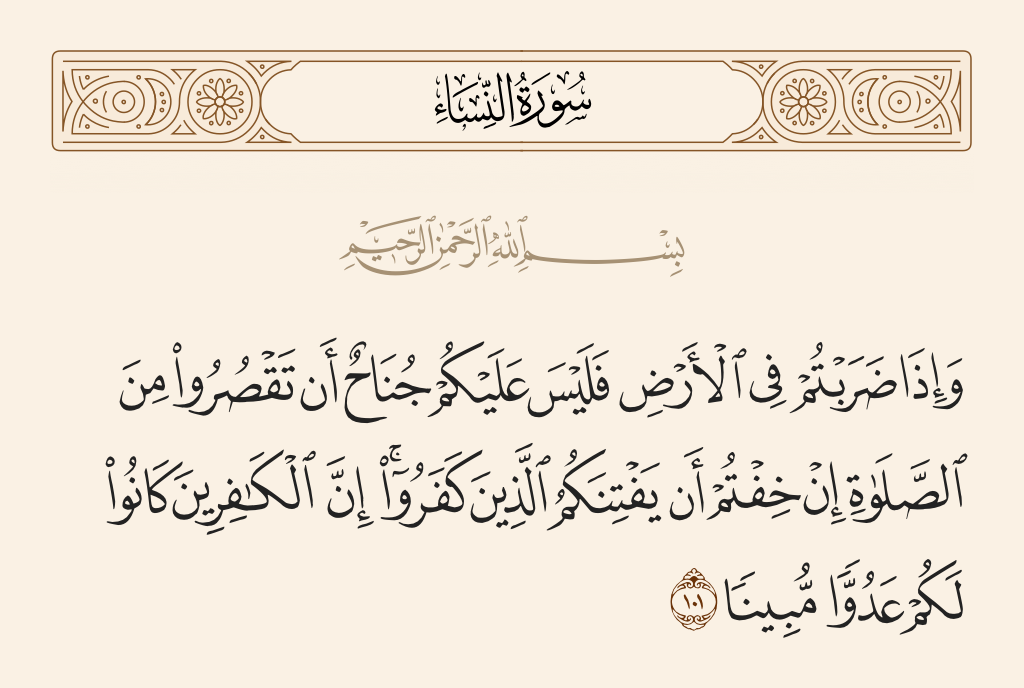 سُورَةُ النِّسَاءِ
بِسْمِ ٱللَّهِ ٱلرَّحْمَٰنِ ٱلرَّحِيمِ
وَإِذَا ضَرَبْتُمْ فِى ٱلْأَرْضِ فَلَيْسَ عَلَيْكُمْ جُنَاحٌ أَن تَقْصُرُوا۟ مِنَ
ٱلصَّلَوٰةِ إِنْ خِفْتُمْ أَن يَفْتِنَكُمُ ٱلَّذِينَ كَفَرُوٓا۟ ۚ إِنَّ ٱلْكَـٰفِرِينَ كَانُوا۟
لَكُمْ عَدُوًّا مُّبِينًا ١٠١